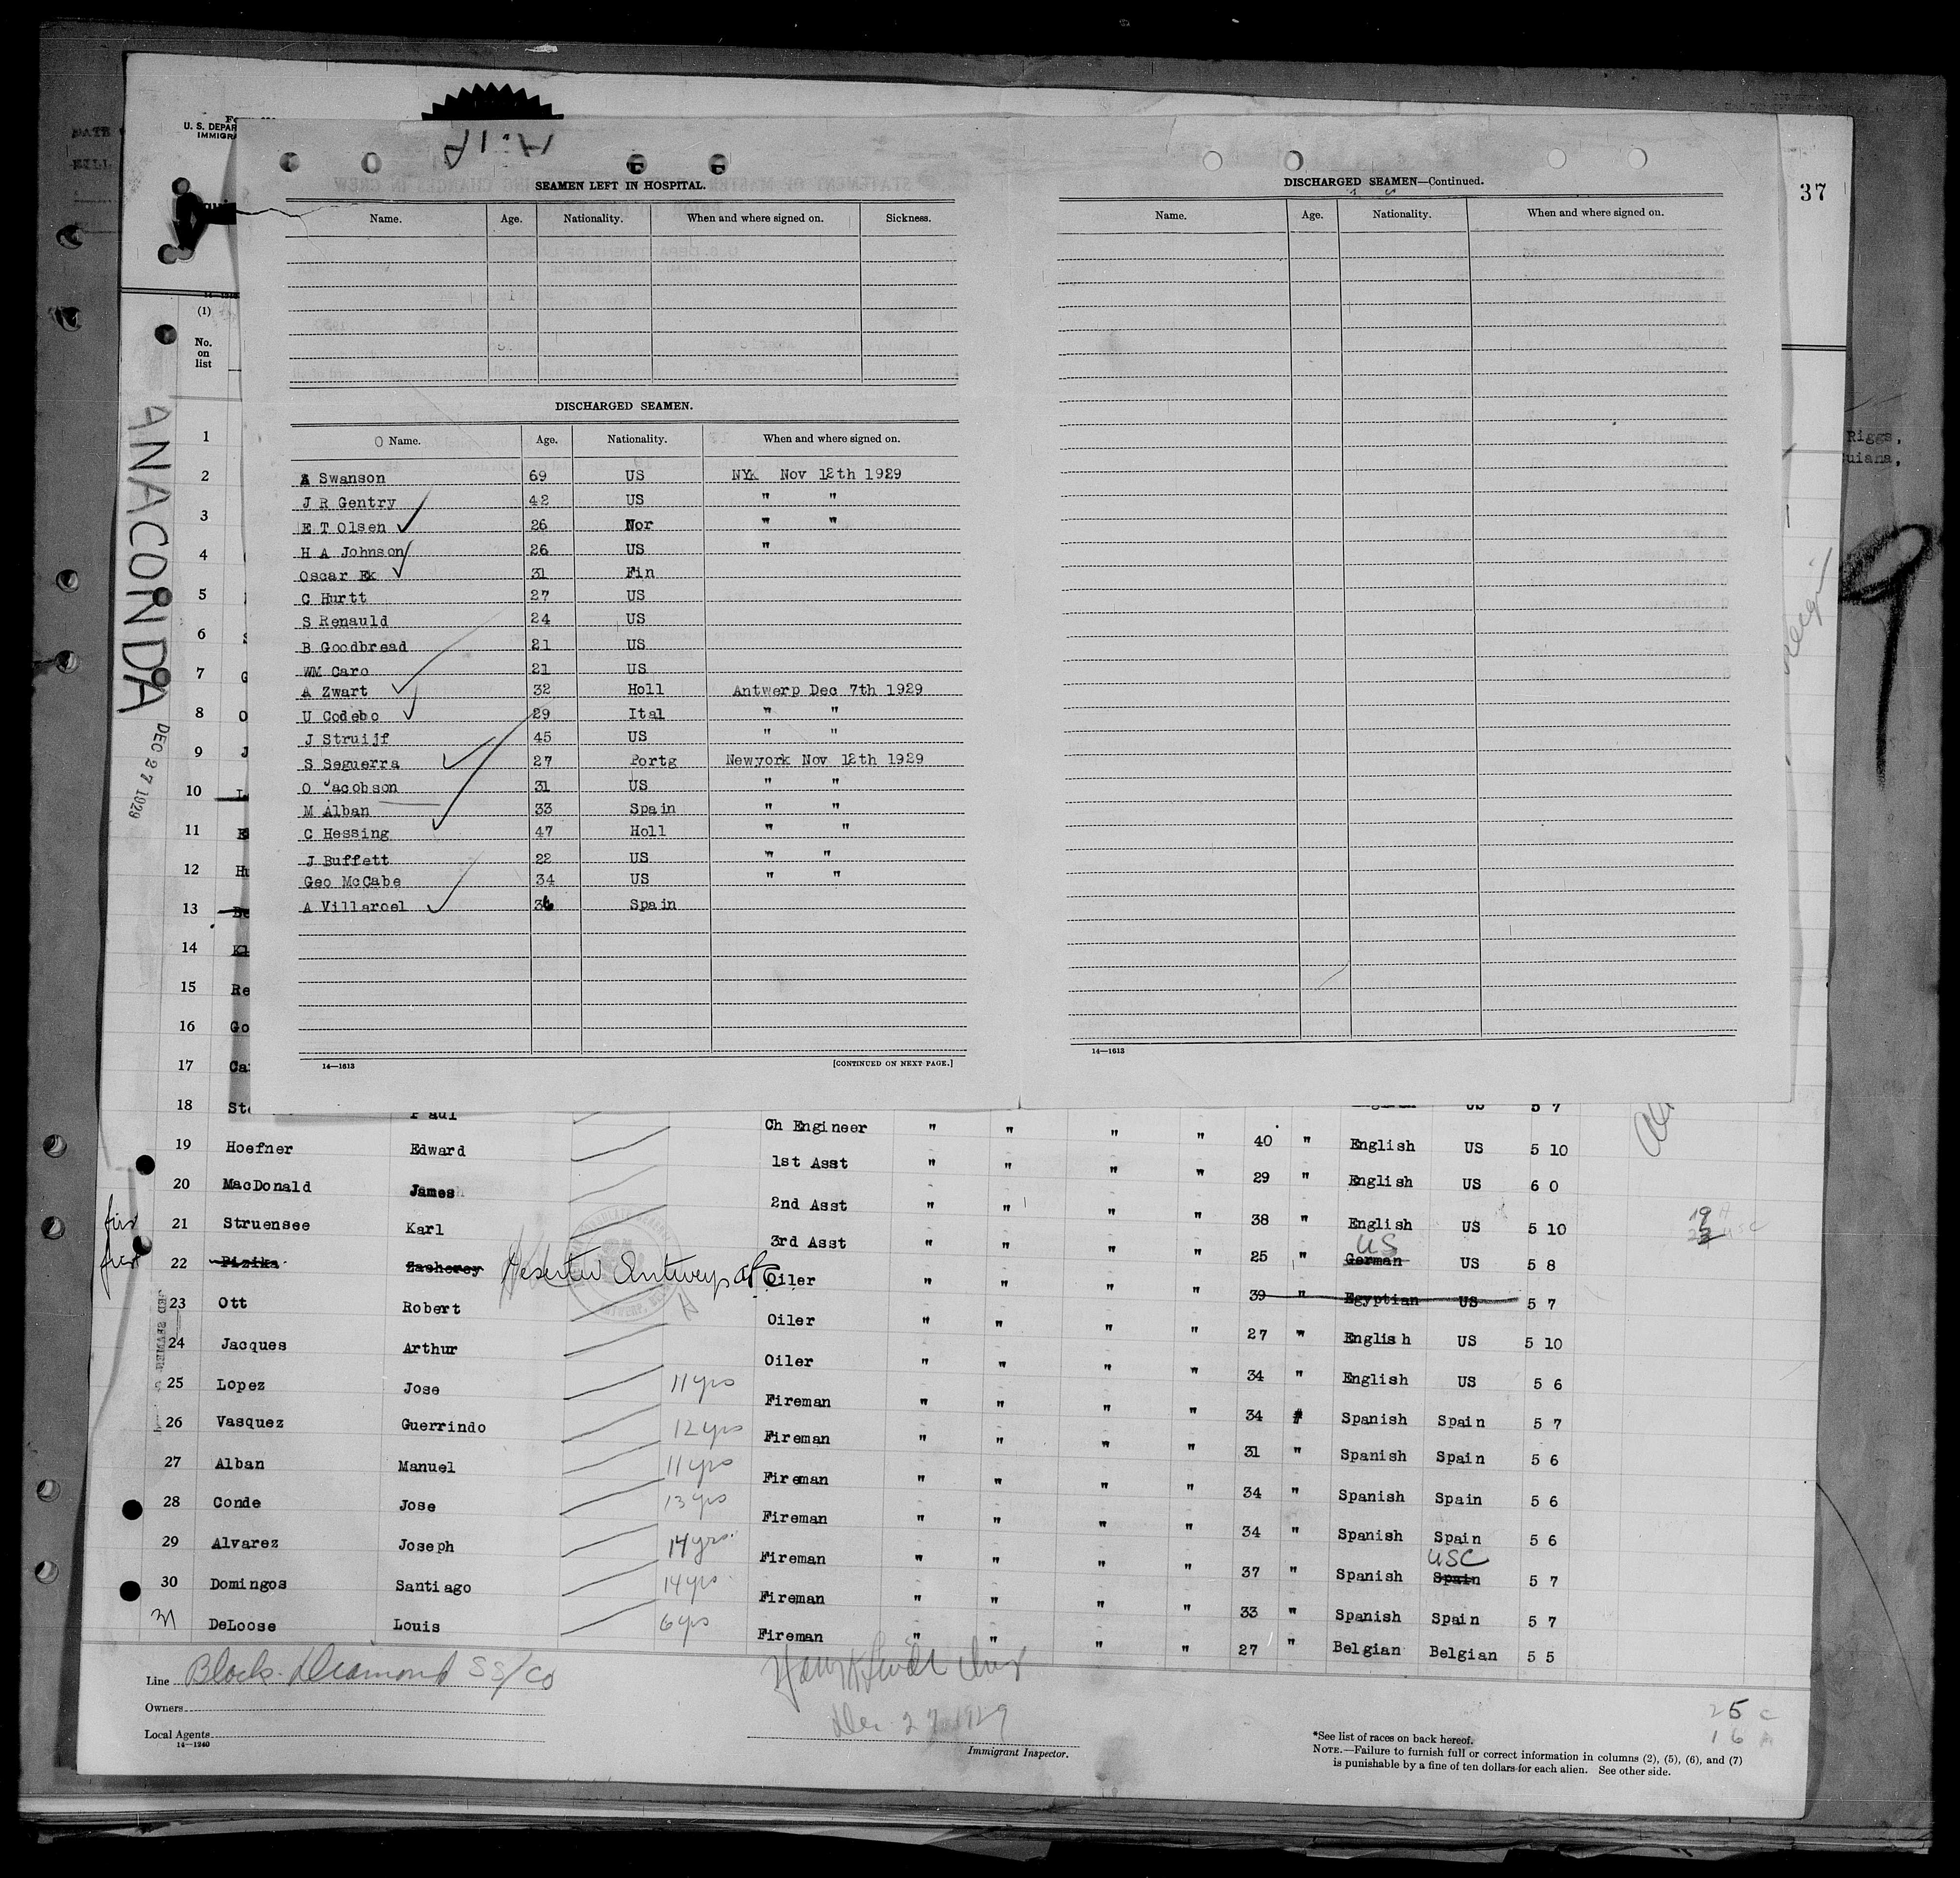 U. S. DEPAR
IMMIGRA
37
SEAMEN LEFT IN HOSPITAL.
Name. Age. Nationality. When and where signed on. Sickness.
DISCHARGED SEAMEN.
Name. Age. Nationality. When and where signed on.
A Swanson 69 US NYk Nov 12th 1929
J R Gentry 42 US " "
E T Olsen 26 Nor " "
H A Johnson 26 US "
Oscar Ek 31 Fin
C Hurtt 27 US
S Renauld 24 US
B Goodbread 21 US
WM Caro 21 US
A Zwart 32 Holl Antwerp Dec 7th 1929
U Codebo 29 Ital " "
J Struijf 45 US " "
S Seguerra 27 Portg Newyork Nov 12th 1929
O Jacobson 31 US " "
M Alban 33 Spain " "
C Hessing 47 Holl " "
J Buffett 22 US " "
Geo McCabe 34 US " "
A Villaroel Spain
14—1613 [CONTINUED ON NEXT PAGE.]
DISCHARGED SEAMEN—Continued.
Name. Age. Nationality. When and where signed on.
14—1613
Riggs,
ANACONDA
DEC 27 1929
(1)
No. on list
1
2
3
4
5
6
7
8
9
10
11
12
13
14
15
16
17
18 Paul Ch Engineer " " " " 40 " English US 5 10
19 Hoefner Edward 1st Asst " " " " 29 " English US 6 0
20 MacDonald James 2nd Asst " " " " 38 " English US 5 10
21 Struensee Karl 3rd Asst " " " " 25 " German US US 5 8
22 Pizika Zacherey Deserted Antwerp Oiler " " " " 39 " Egyptian US 5 7
23 Ott Robert Oiler " " " " 27 " English US 5 10
24 Jacques Arthur Oiler " " " " 34 " English US 5 6
25 Lopez Jose 11 yrs Fireman " " " " 34 " Spanish Spain 5 7
26 Vasquez Guerrindo 12 yrs Fireman " " " " 31 " Spanish Spain 5 6
27 Alban Manuel 11 yrs Fireman " " " " 34 " Spanish Spain 5 6
28 Conde Jose 13 yrs Fireman " " " " 34 " Spanish Spain 5 6
29 Alvarez Joseph 14 yrs. Fireman " " " " 37 " Spanish Spain USC 5 7
30 Domingos Santiago 14 yrs Fireman " " " " 33 " Spanish Spain 5 7
31 DeLoose Louis 6 yrs Fireman " " " " 27 " Belgian Belgian 5 5
Line Black Diamond SS/Co
Owners
Local Agents
14—1240
Dec 27 1929
Immigrant Inspector.
25 C
16 A
*See list of races on back hereof.
NOTE.—Failure to furnish full or correct information in columns (2), (5), (6), and (7)
is punishable by a fine of ten dollars for each alien. See other side.